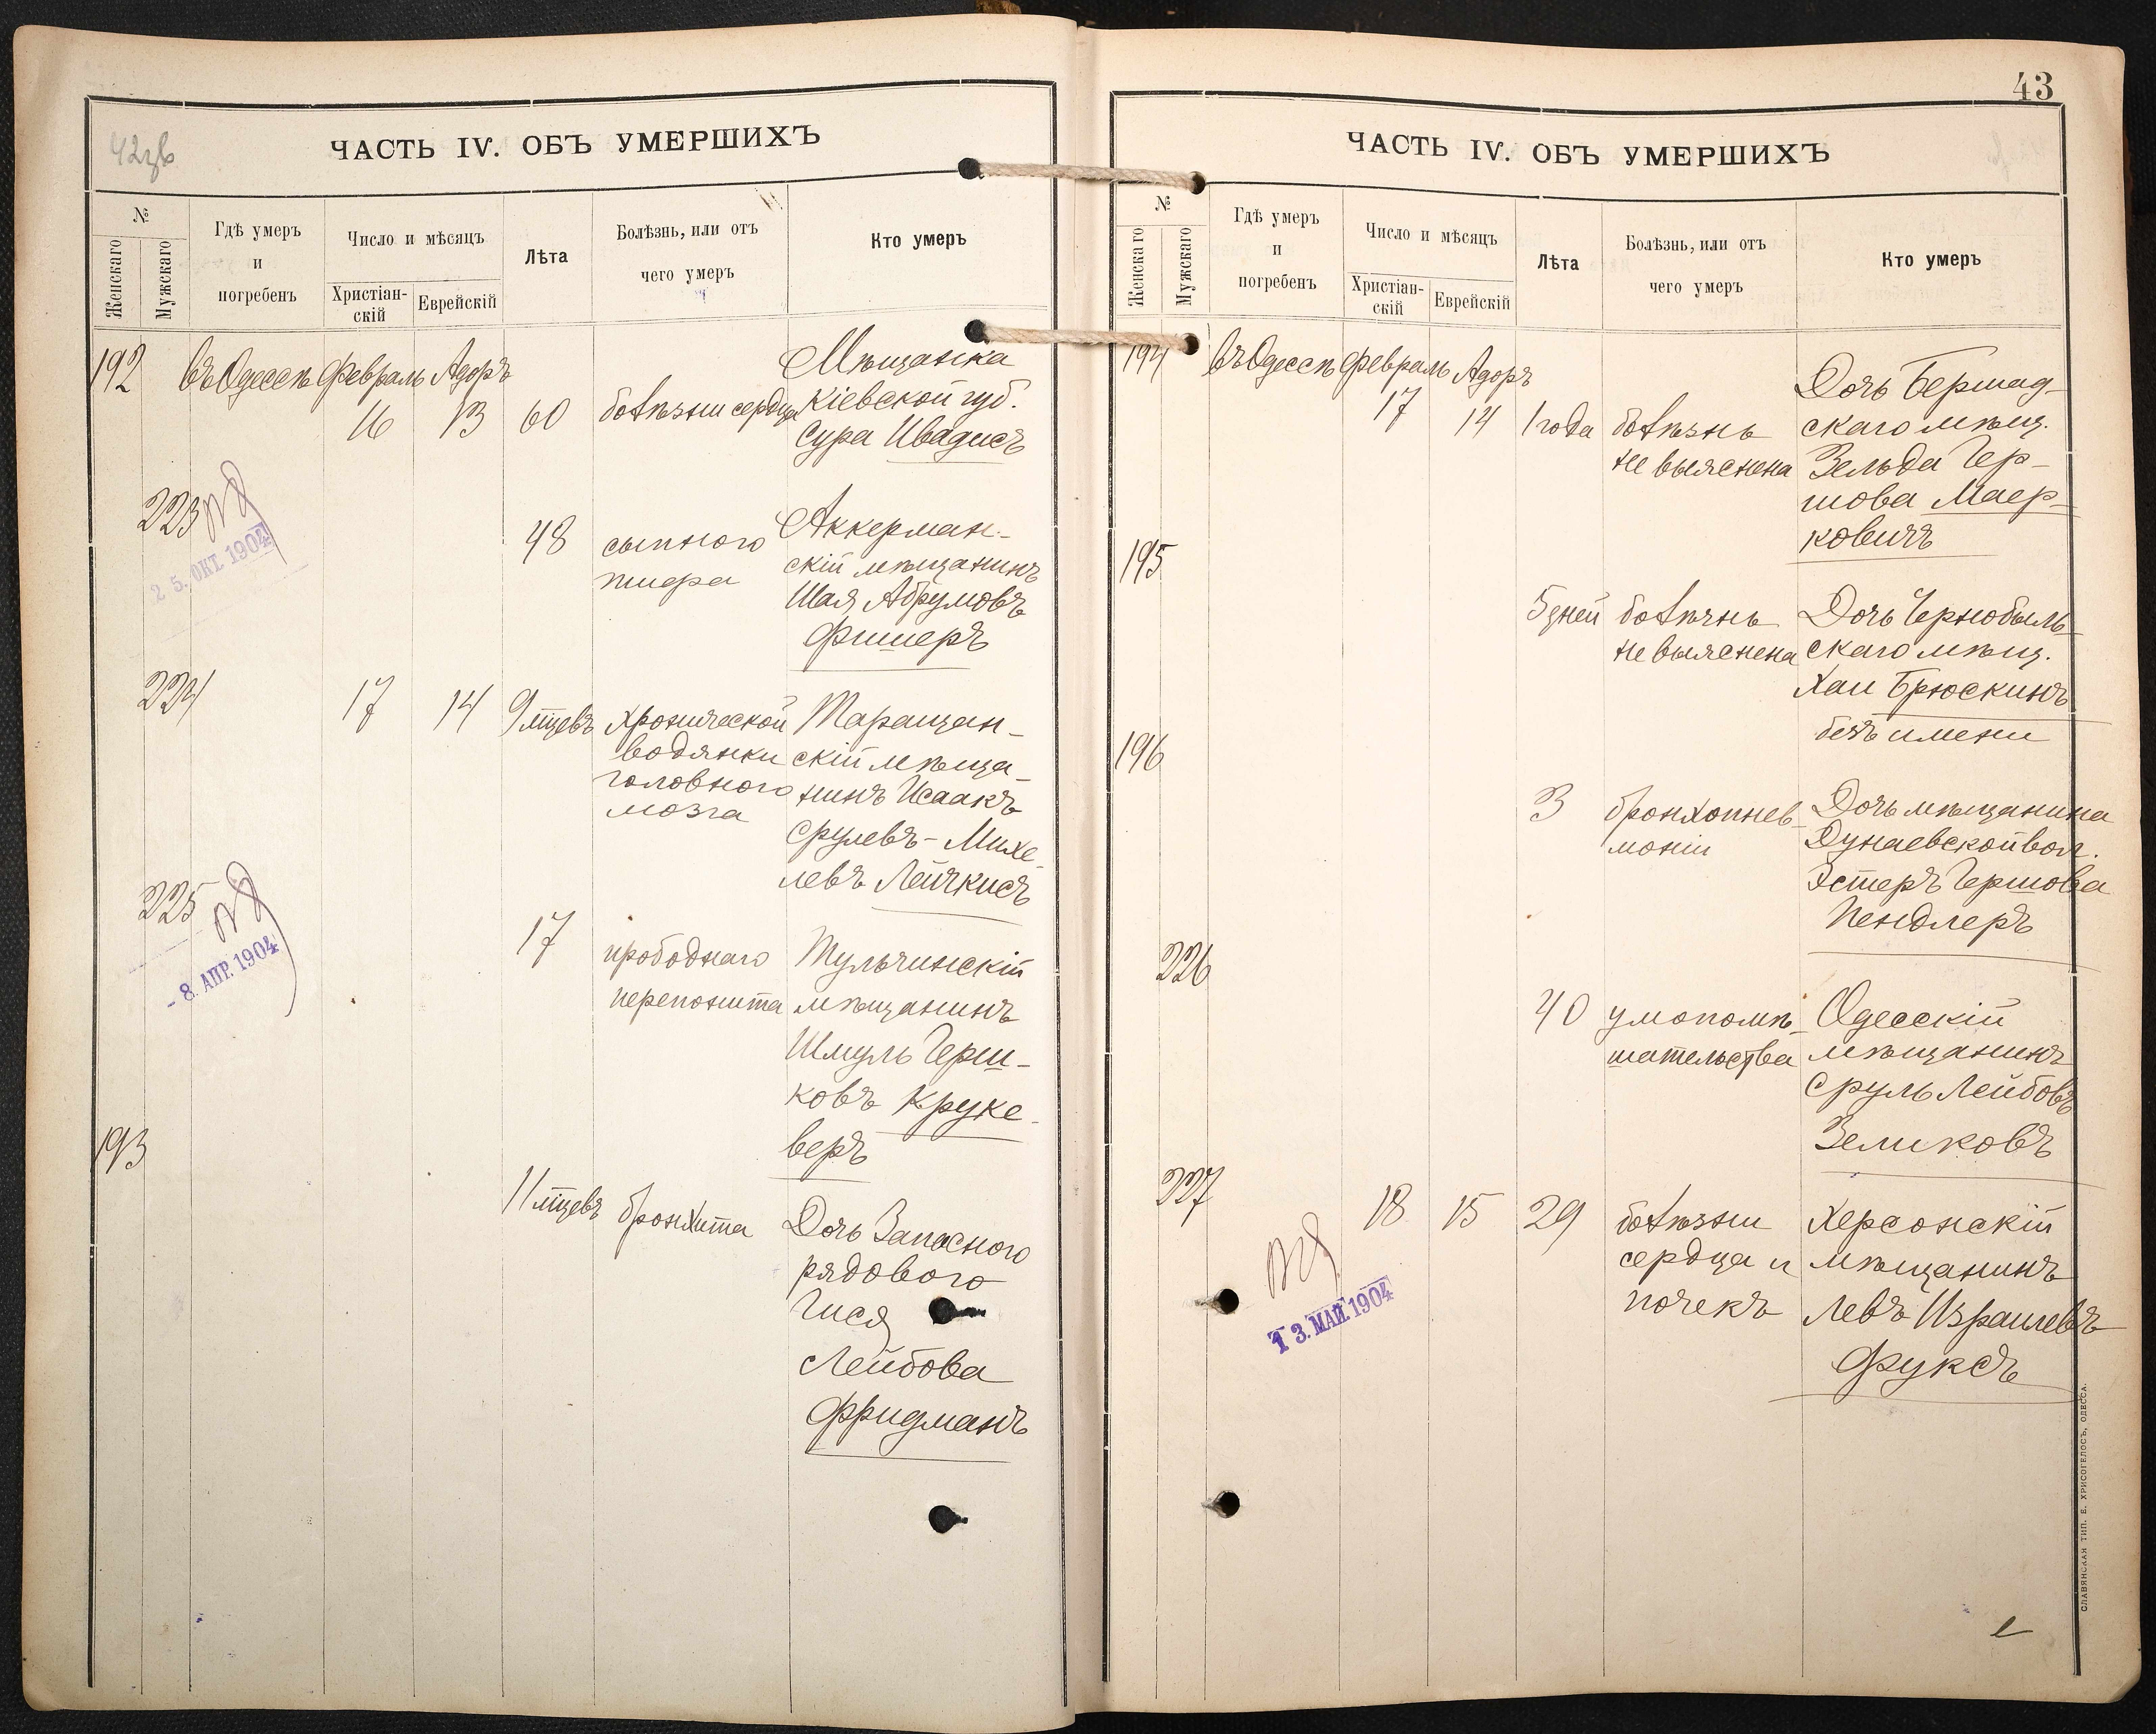 42зв
ЧАСТЬ IV. ОБЪ УМЕРШИХЪ
№
Женскаго
Мужскаго
Гдѣ умеръ
и
погребенъ
Число и мѣсяцъ
Христіан-
скій
Еврейскій
Лѣта
Болѣзнь, или отъ
чего умеръ
Кто умеръ
192 въ Одессѣ Февраль Адоръ
16 13 60 болѣзни сердца
Мѣщанка
Кіевской губ.
Сура Ивадисъ
223
25. ОКТ. 1904
48 сыпного
тифа
Аккерман-
скій мѣщанинъ
Шая Абрумовъ
Фишеръ
224 17 14 9 мѣцевъ хронической
водянки
головного
мозга
Таращан-
скій мѣща-
нинъ Исаакъ
Срулевъ-Михе-
левъ Лейчкисъ
225
- 8. АПР. 1904
17 прободнаго
перетонита
Тульчинскій
мѣщанинъ
Шмуль Герш-
ковъ Круке-
веръ
193
11 мѣцевъ бронхита
Дочь Запасного
рядового
Гися
Лейбова
Фридманъ
43
ЧАСТЬ IV. ОБЪ УМЕРШИХЪ
№
Женскаго
Мужскаго
Гдѣ умеръ
и
погребенъ
Число и мѣсяцъ
Христіан-
скій
Еврейскій
Лѣта
Болѣзнь, или отъ
чего умеръ
Кто умеръ
194 въ Одессѣ Февраль Адоръ
17 14 1 года болѣзнь
не выяснена
Дочь Бершад-
скаго мѣщ.
Зельда Гер-
шова Маер-
ковичъ
195
5 дней болѣзнь
не выяснена
Дочь Чернобыль-
скаго мѣщ.
Хаи Брюскинъ
безъ имени
196
3 бронхопнев-
моніи
Дочь мѣщанина
Дунаевской вол.
Эстеръ Гершова
Пендлеръ
226
40 умопомѣ-
шательства
Одесскій
мѣщанинъ
Сруль Лейбовъ
Зеликовъ
227
13. МАЙ 1904
18 15 29 болѣзни
сердца и
почекъ
Херсонскій
мѣщанинъ
Левъ Израилевъ
Фуксъ
СЛАВЯНСКАЯ ТИП. Е. ХРИСОГЕЛОСЪ, ОДЕССА.